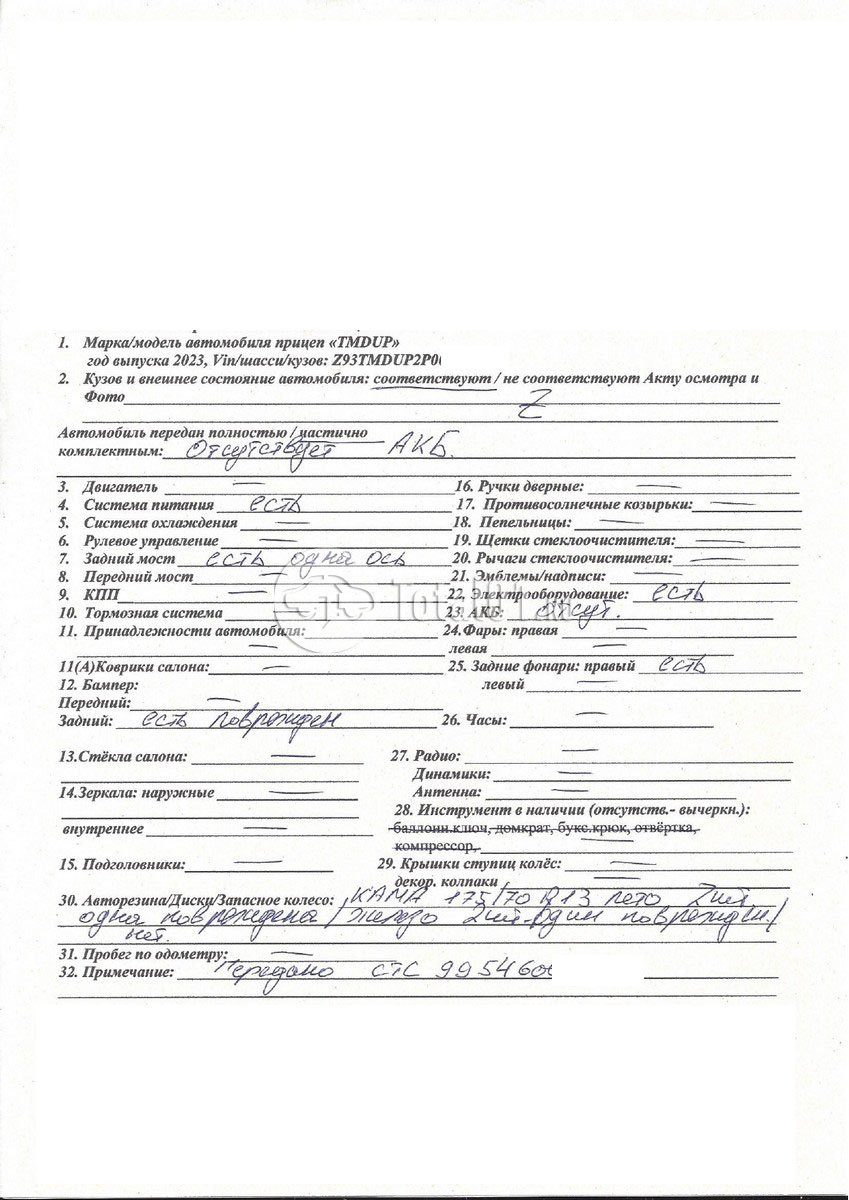 1. Марка/модель автомобиля прицеп «TMDUP»
год выпуска 2023, Vin/шасси/кузов: Z93TMDUP2P0
2. Кузов и внешнее состояние автомобиля: соответствуют / не соответствуют Акту осмотра и
Фото Z
Автомобиль передан полностью / частично
комплектным: Отсутствует АКБ.
3. Двигатель —
16. Ручки дверные: —
4. Система питания есть
17. Противосолнечные козырьки: —
5. Система охлаждения —
18. Пепельницы: —
6. Рулевое управление —
19. Щетки стеклоочистителя: —
7. Задний мост есть одна ось
20. Рычаги стеклоочистителя: —
8. Передний мост —
21. Эмблемы/надписи: —
9. КПП —
22. Электрооборудование: есть
10. Тормозная система
23. АКБ: отсут.
11. Принадлежности автомобиля: —
24.Фары: правая —
левая —
11(А)Коврики салона: —
25. Задние фонари: правый есть
12. Бампер:
левый —
Передний: —
Задний: есть поврежден
26. Часы: —
13.Стёкла салона: —
27. Радио: —
Динамики: —
14.Зеркала: наружные —
Антенна: —
28. Инструмент в наличии (отсутств.- вычеркн.):
внутреннее —
баллонн.ключ, домкрат, букс.крюк, отвёртка,
компрессор, —
15. Подголовники: —
29. Крышки ступиц колёс: —
декор. колпаки —
30. Авторезина/Диски/Запасное колесо: КАМА 175/70 R13 лето 2шт
одна повреждена / железо 2шт-один поврежден/
нет.
31. Пробег по одометру: —
32. Примечание: Передано СТС 995460